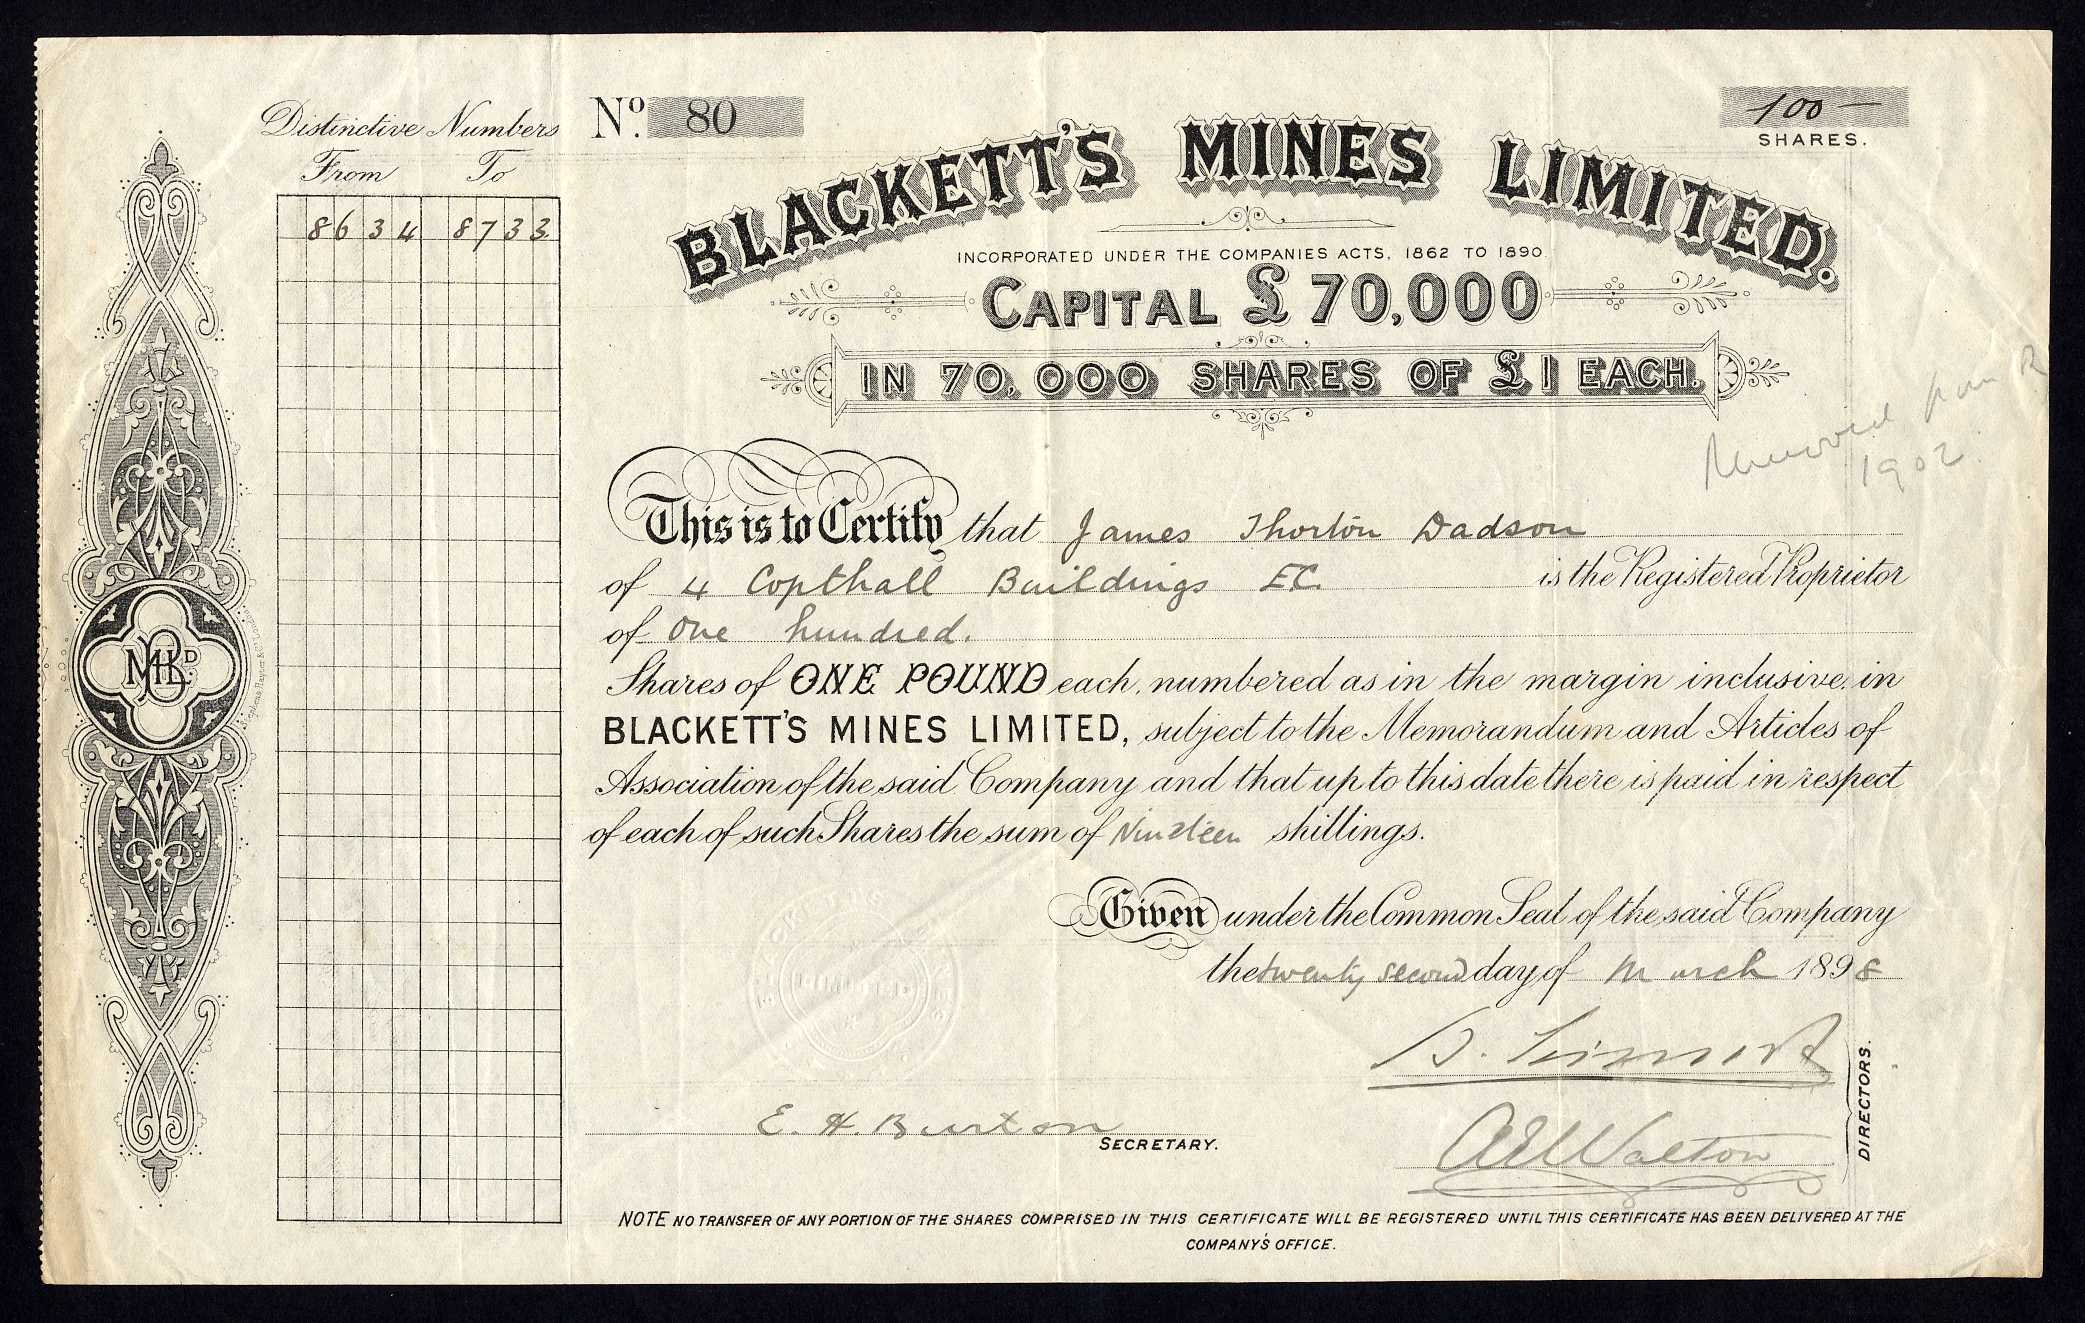 Distinctive Numbers
From To
8634 8733
No. 80
100 —
SHARES.
BLACKETT'S MINES LIMITED.
INCORPORATED UNDER THE COMPANIES ACTS, 1862 TO 1890.
CAPITAL £70,000
IN 70,000 SHARES OF £1 EACH.
Removed from R
1902.
This is to Certify that James Thorton Dadson
of 4 Copthall Buildings EC. is the Registered Proprietor
of One hundred.
Shares of ONE POUND each, numbered as in the margin inclusive, in
BLACKETT'S MINES LIMITED, subject to the Memorandum and Articles of
Association of the said Company and that up to this date there is paid in respect
of each of such Shares the sum of Nineteen shillings.
Given under the Common Seal of the said Company
the twenty second day of March 1898
DIRECTORS.
E. H. Burton
SECRETARY.
Walton
NOTE NO TRANSFER OF ANY PORTION OF THE SHARES COMPRISED IN THIS CERTIFICATE WILL BE REGISTERED UNTIL THIS CERTIFICATE HAS BEEN DELIVERED AT THE
COMPANY'S OFFICE.